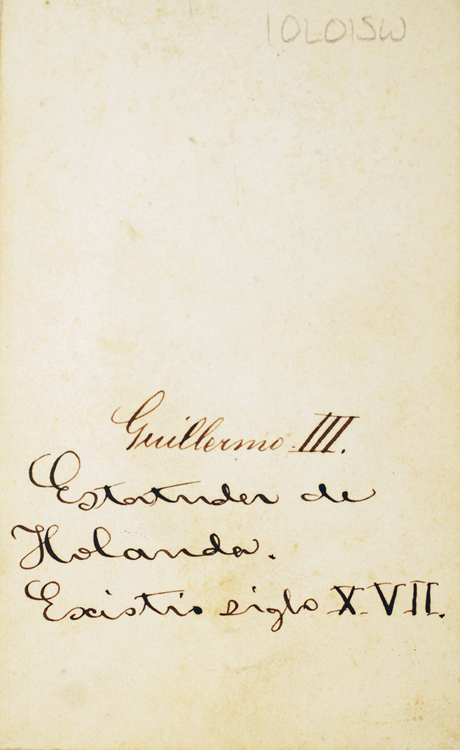 10L015W
Guillermo III.
Estatuder de
Holanda.
Existio siglo XVII.